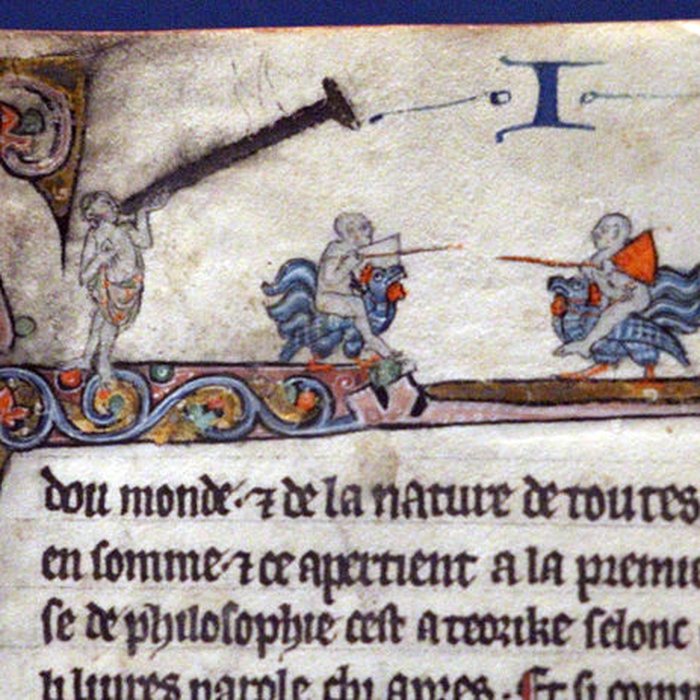 I
dou monde· ⁊ de la nature de toutes
en somme· ⁊ ce apertient a la premie
se de philosophie cest a teorike selonc
li liures parole chi apres · Et si com